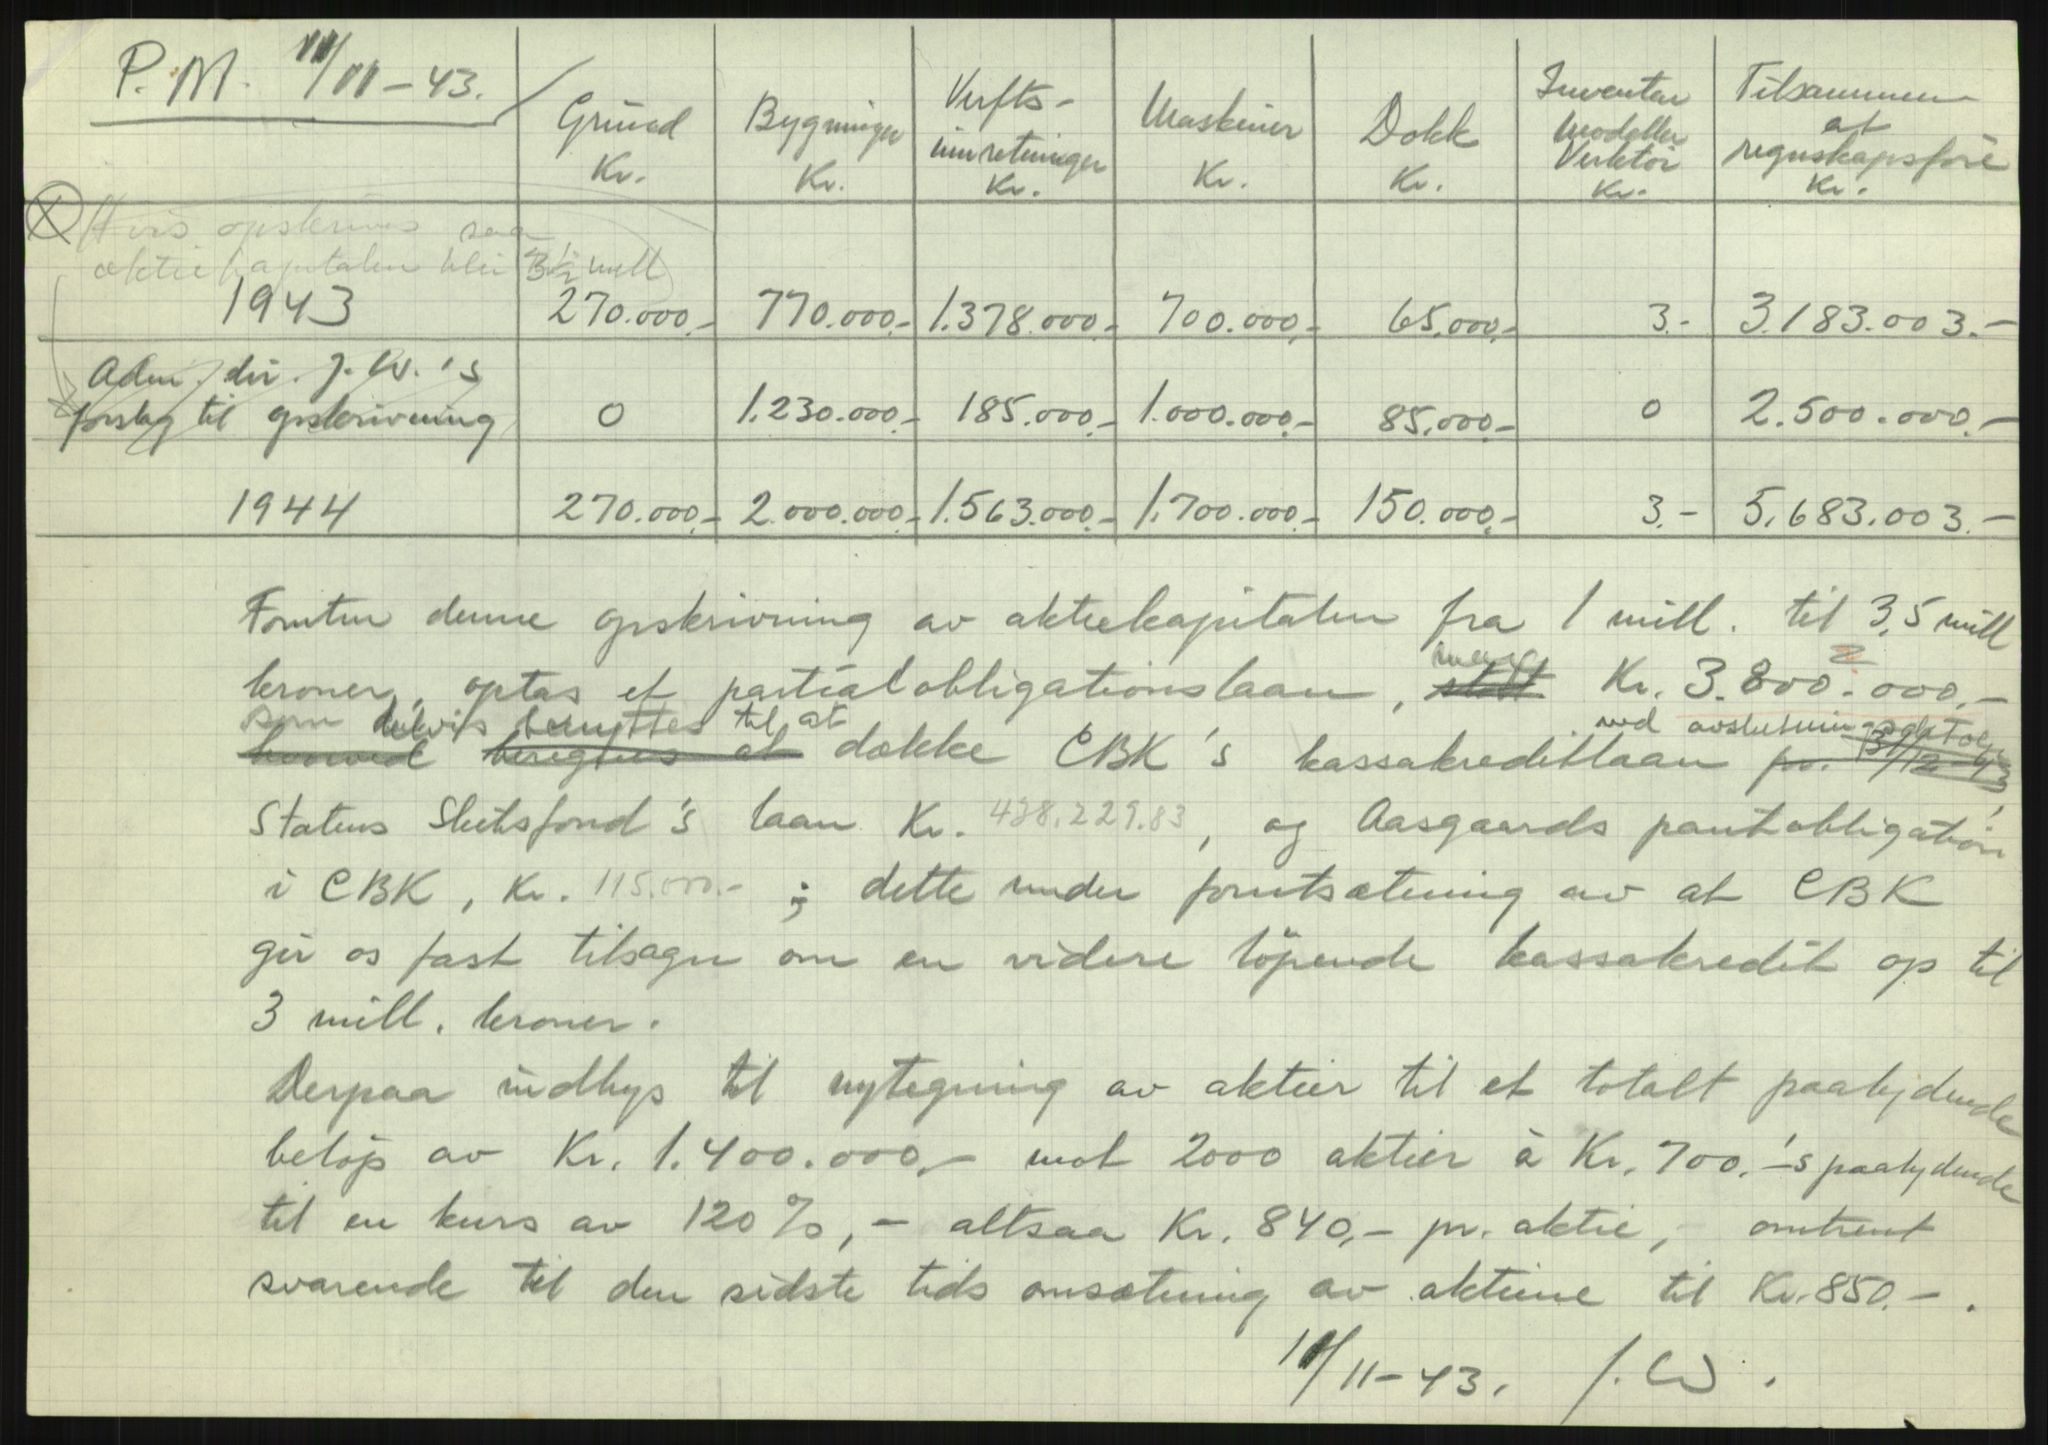 P.M. 11/11-43.
Grund Kr. | Bygninger Kr. | Verfts-innretninger Kr. | Maskiner Kr. | Dokk Kr. | Inventar Modeller Verktöi Kr. | Tilsammen at regnskapsføre Kr.
Hvis opskrives saa
aktiekapitalen blir 3 1/2 mill
1943 | 270.000,- | 770.000,- | 1.378.000,- | 700.000,- | 65.000,- | 3.- | 3.183.003.-
Adm. dir. J.W.'s
forslag til opskrivning | 0 | 1.230.000,- | 185.000,- | 1.000.000,- | 85.000,- | 0 | 2.500.000,-
1944 | 270.000,- | 2.000.000,- | 1.563.000,- | 1.700.000,- | 150.000,- | 3.- | 5.683.003.-
Foruten denne opskrivning av aktiekapitalen fra 1 mill. til 3,5 mill
kroner, optas et partialobligationslaan, Kr. 3.800.000,-
som delvis benyttes til at dække CBK's kassakreditlaan ved avslutning pr. 31/12-43
Statens Slitsfond's laan Kr. 428.229.83, og Aasgaards pantobligation
i CBK, Kr. 115.000.- ; dette under forutsætning av at CBK
gir os fast tilsagn om en videre löpende kassakredit op til
3 mill. kroner.
Derpaa indbys til nytegning av aktier til et totalt paalydende
belöp av Kr. 1.400.000,- mot 2000 aktier à Kr. 700.-'s paalydende
til en kurs av 120%, - altsaa Kr. 840,- pr. aktie, omtrent
svarende til den sidste tids omsætning av aktiene til Kr. 850.- .
11/11-43. J.W.